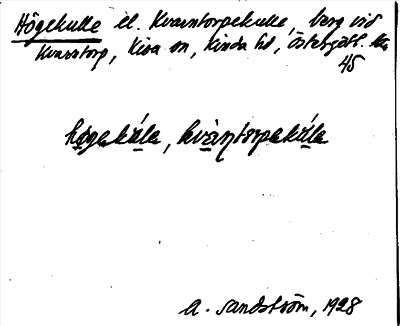 Högekulle el. Kvarntorpekulle, berg vid
Kvarntorp, Kisa sn, Kinda hd, Östergötl. län
45
högekúle, kvàṇtorpekúle
A. Sandström, 1928